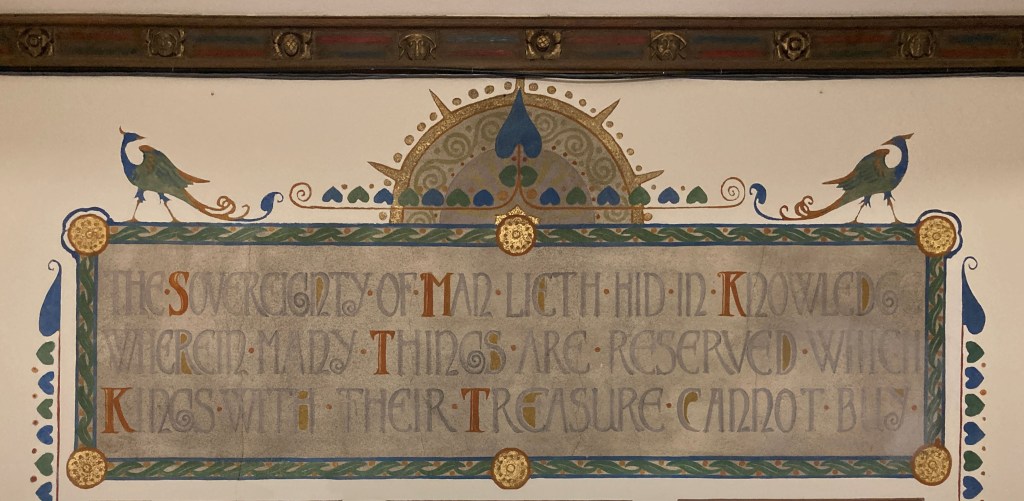 THE·SOVEREIGNTY·OF·MAN·LIETH·HID·IN·KNOWLEDG
WHEREIN·MANY·THINGS·ARE·RESERVED·WHICH
KINGS·WITH·THEIR·TREASURE·CANNOT·BUY·